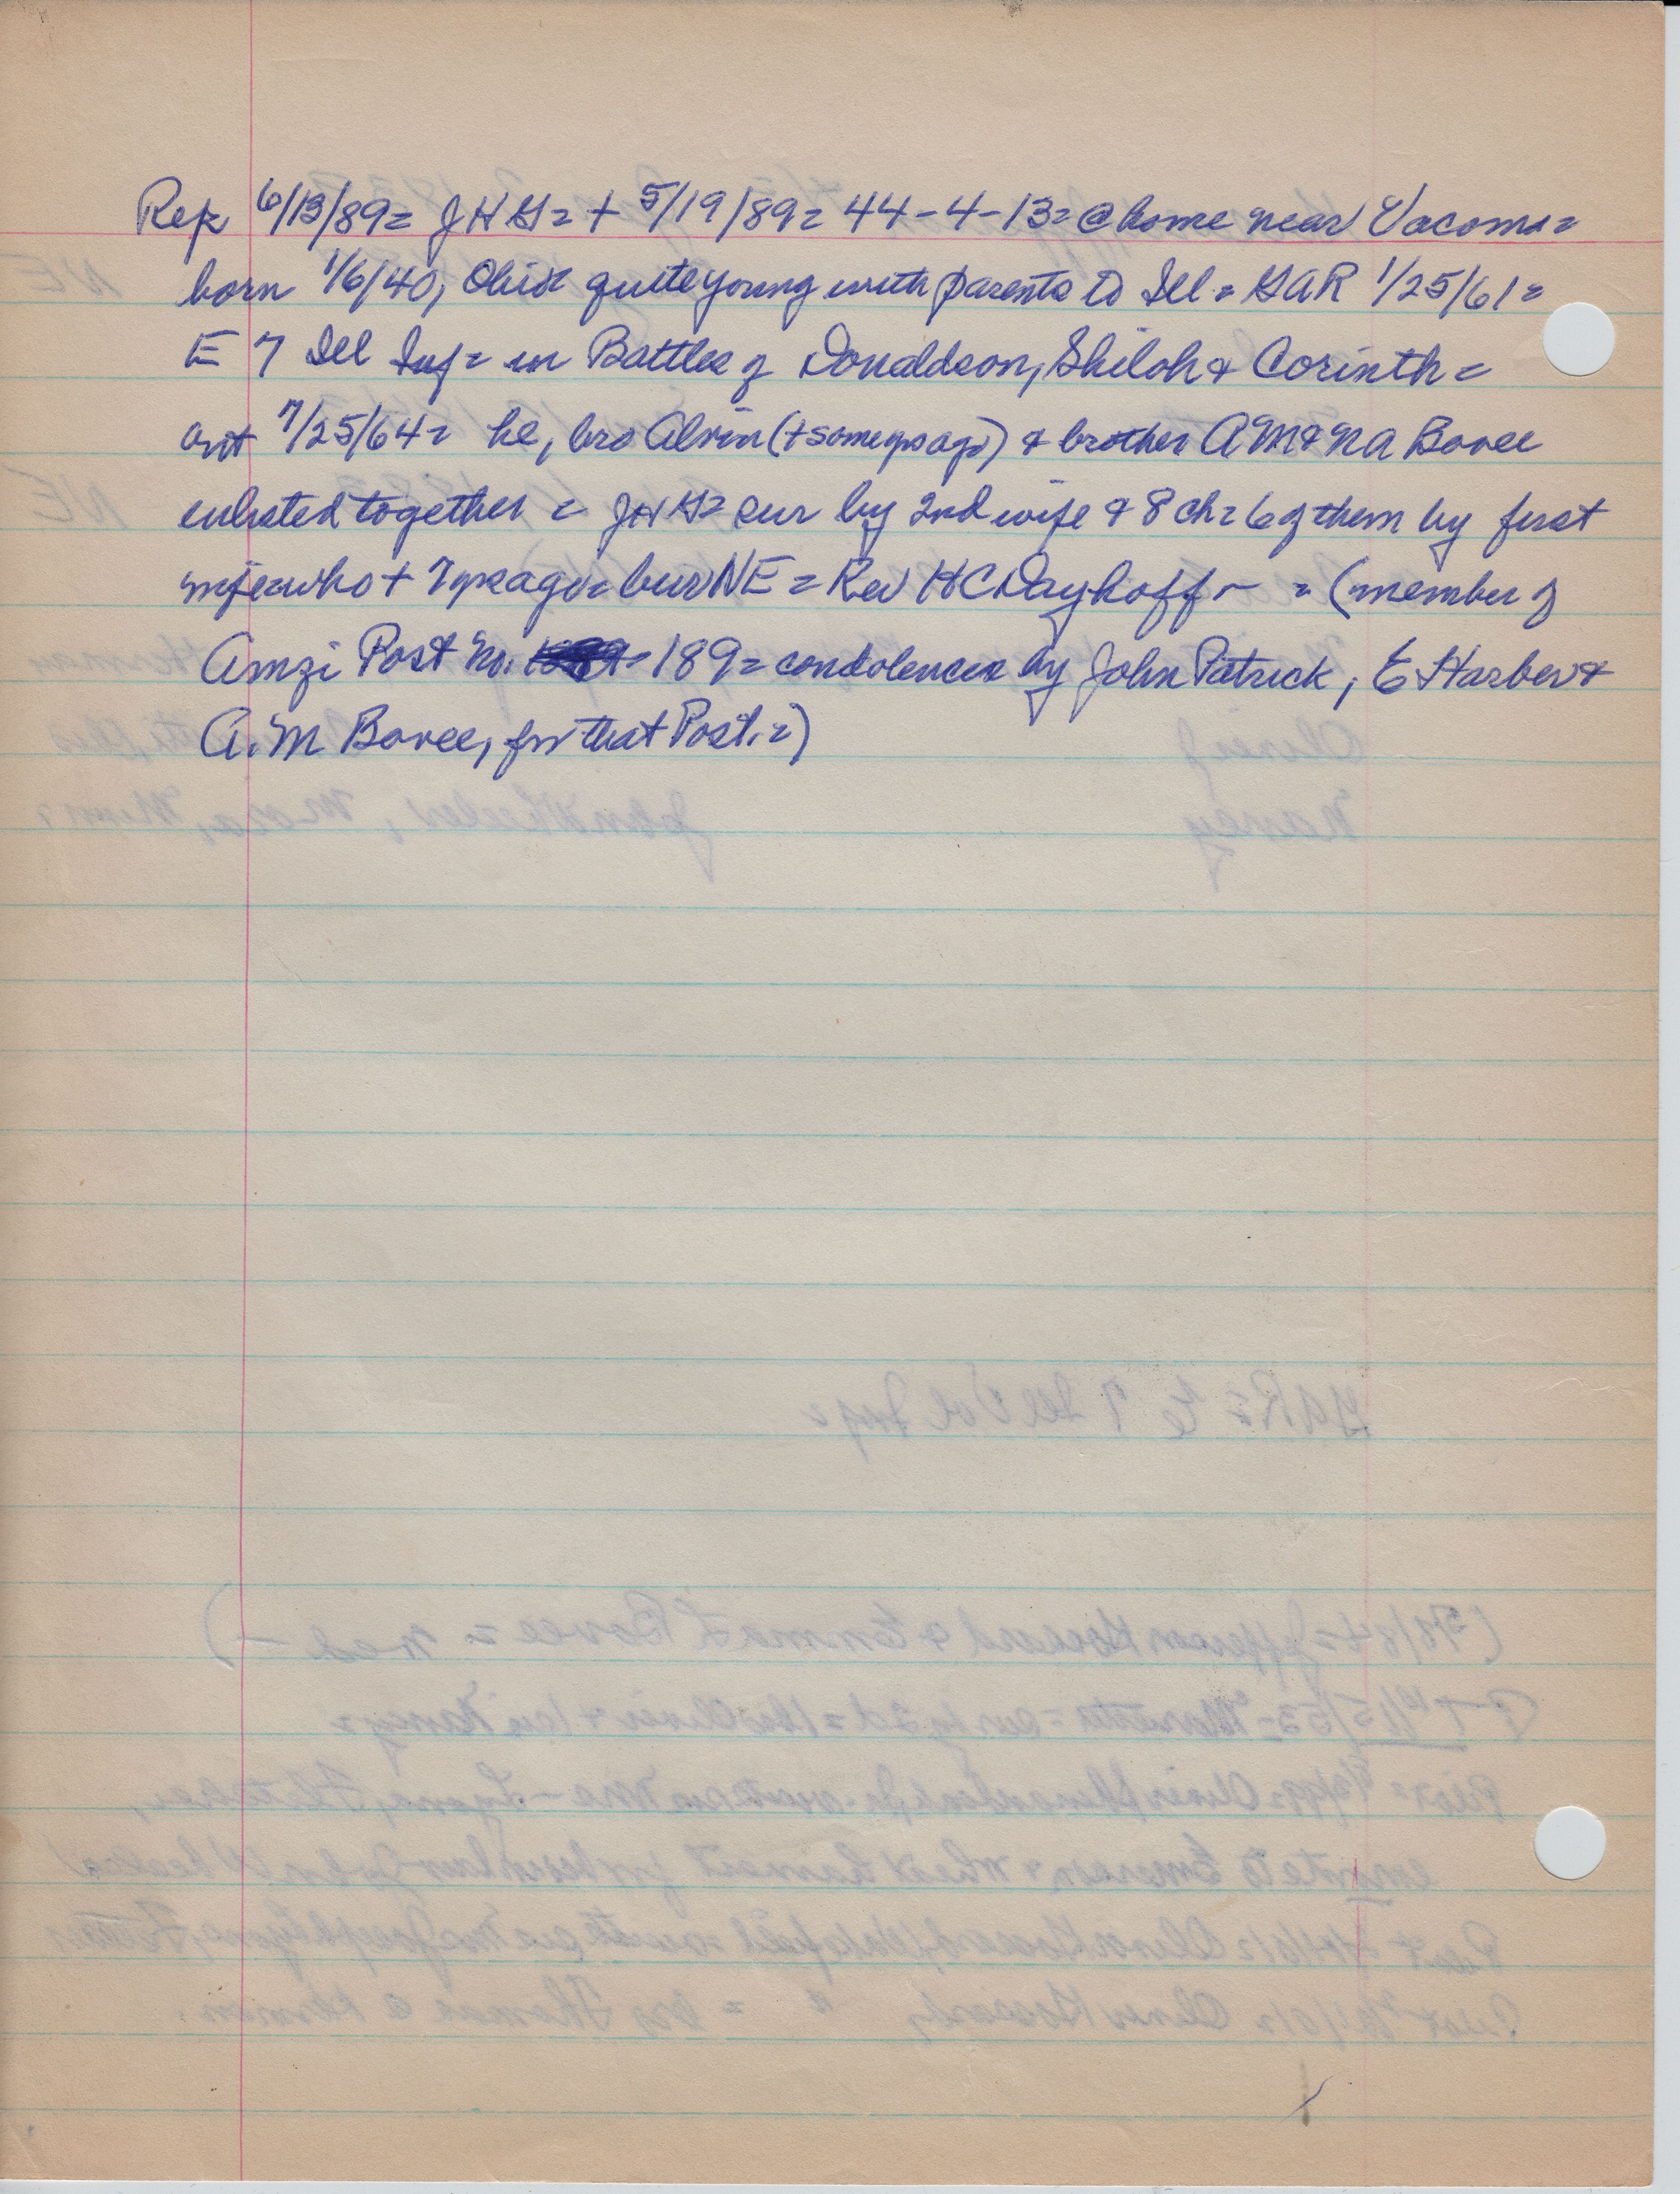 Rep 6/13/89= JHG= + 5/19/89= 44-4-13= @ home near Vacoma=
born 1/6/40, Ohio= quite young with parents to Ill = GAR 1/25/61=
E 7 Ill Inf= in Battles of Donaldson, Shiloh & Corinth=
out 7/25/64= he, bro Alvin (+ some yrs ago) & brother AM & NA Bovee
enlisted together = JHG= sur by 2nd wife & 8 ch= 6 of them by first
wife=who + 7 yrs ago= bur NE = Rev HC Dayhoff - = (member of
Amzi Post No. 189= condolences by John Patrick, E Harber &
A. M Bovee, for that Post.=)